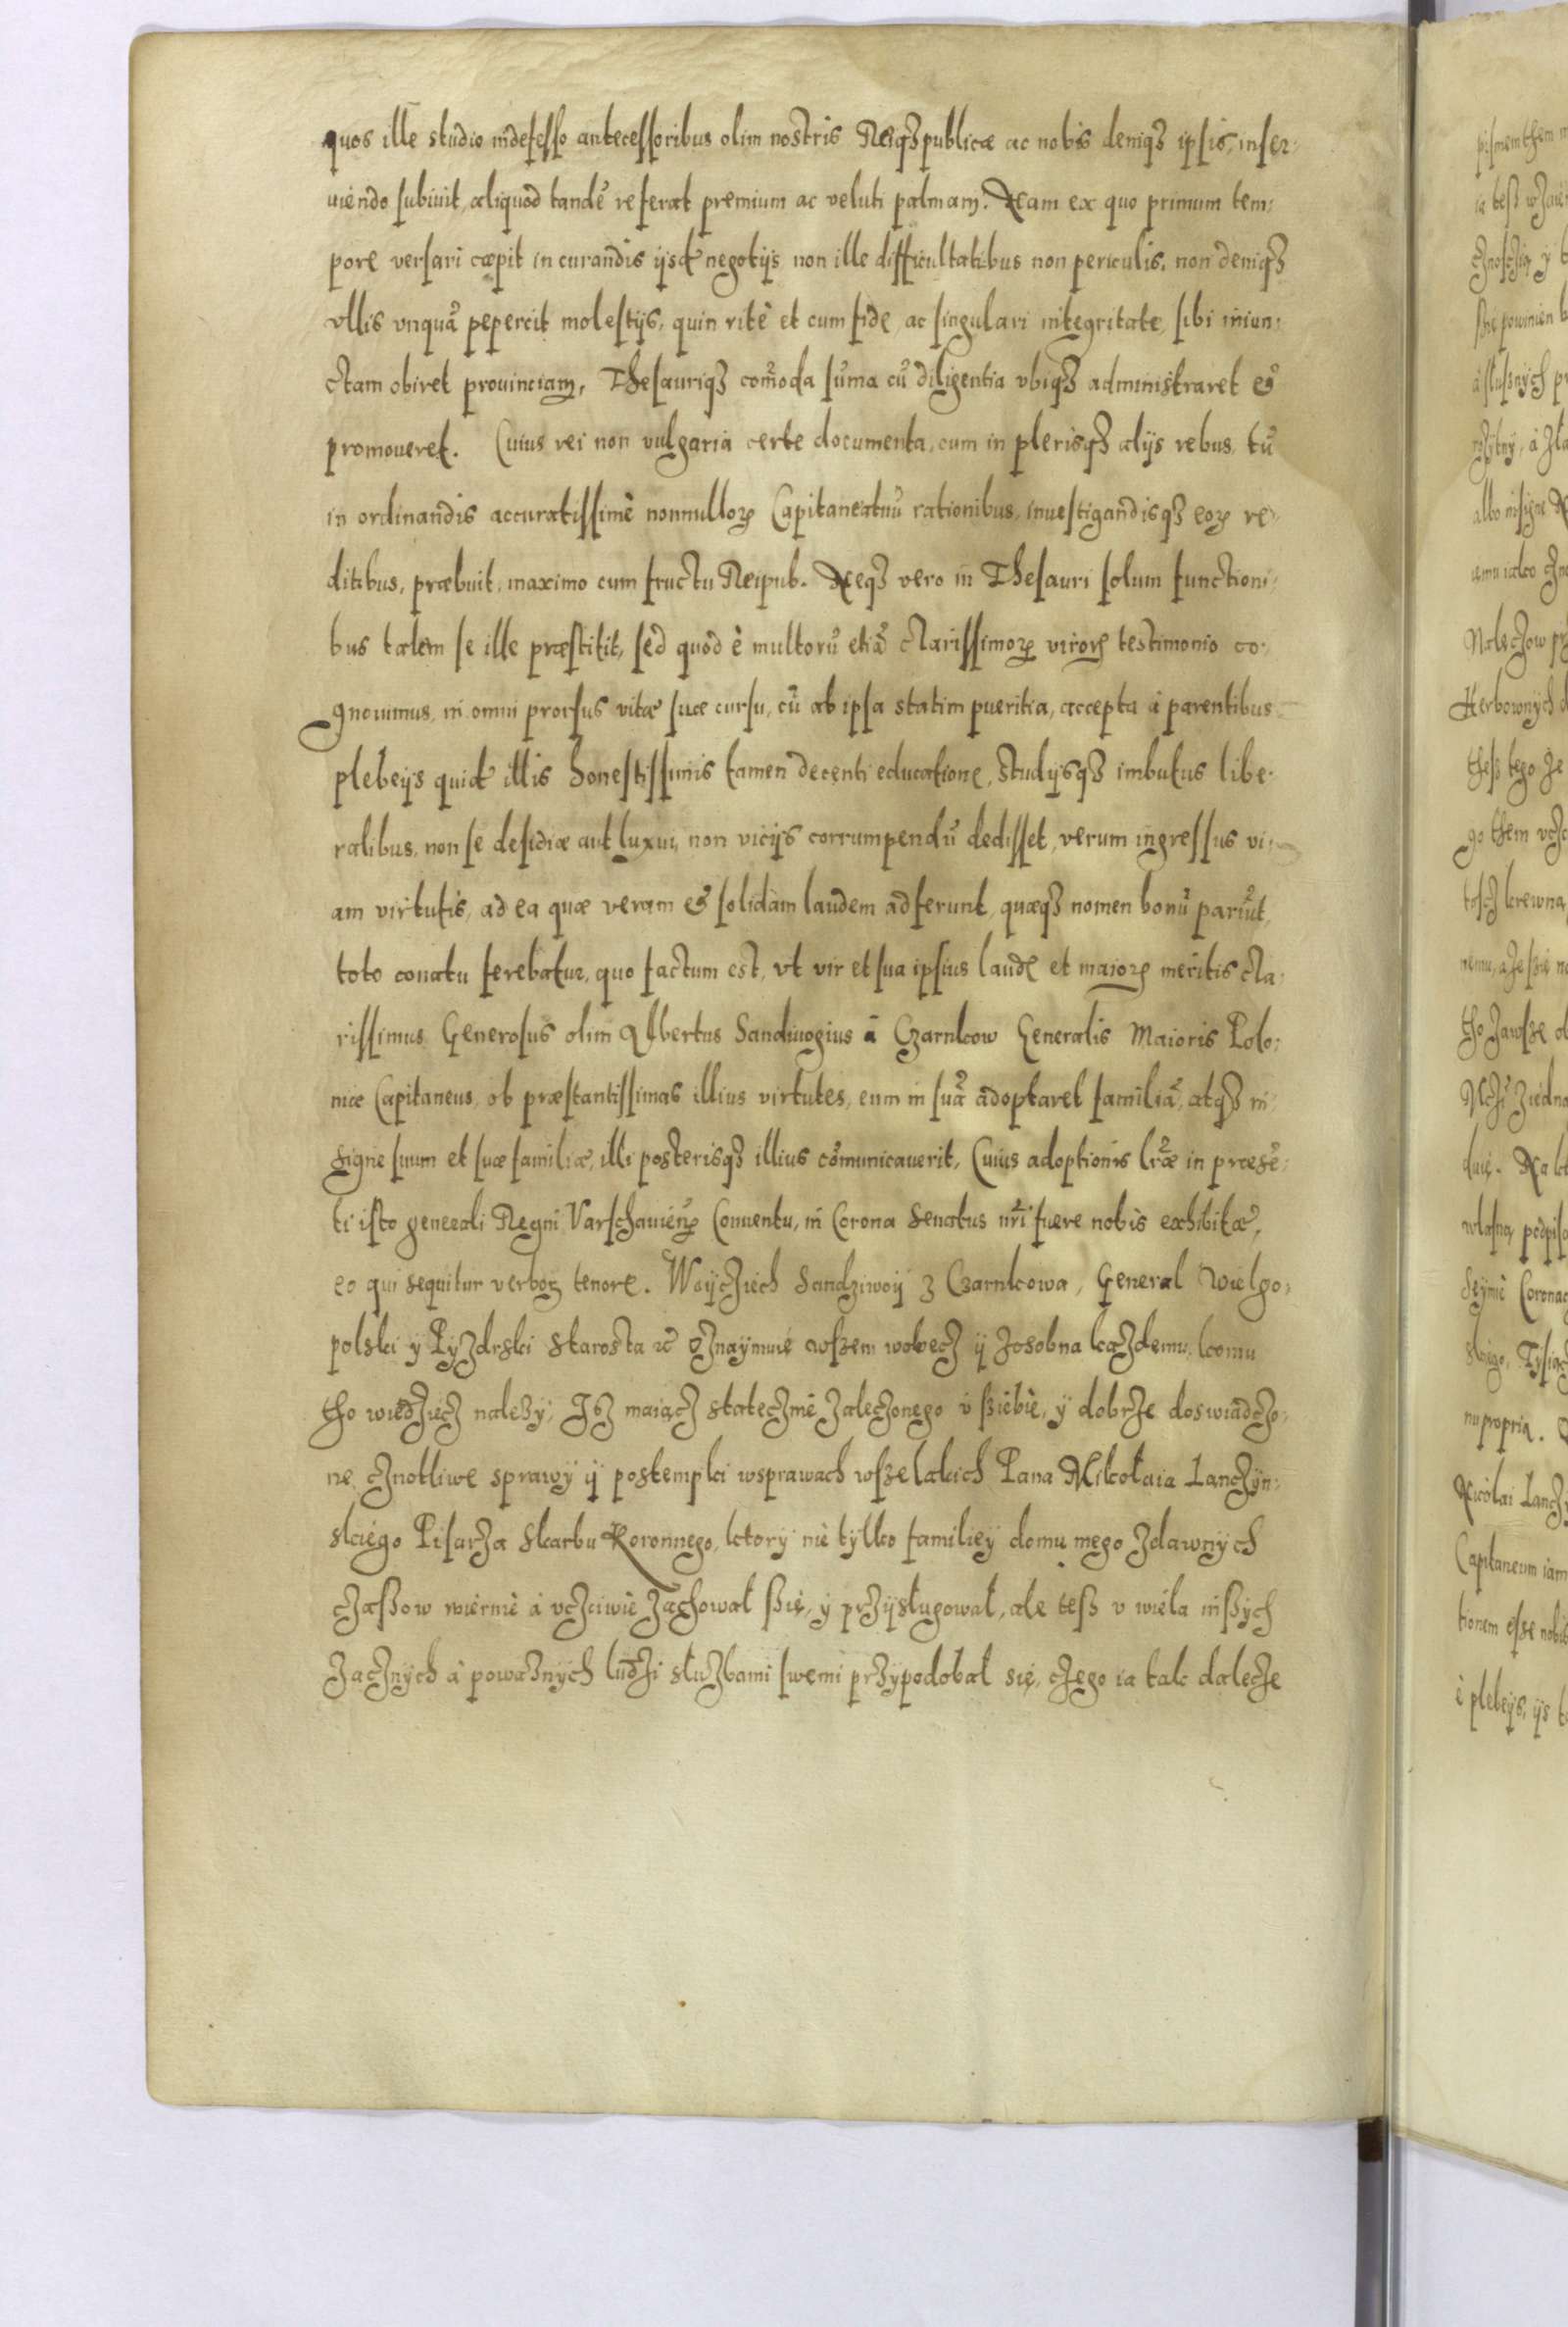 quos ille studio indefesso antecessoribus olim nostris Reiqꝫ publicæ ac nobis deniqꝫ ipsis, inser:
uiendo subiuit, aliquod tandẽ referat premium ac veluti palmam. Nam ex quo primum tem:
pore versari cæpit in curandis ijsdẽ negotijs, non ille difficultatibus non periculis, non deniqꝫ
vllis vnquã pepercit molestijs, quin ritè et cum fide, ac singulari integritate, sibi iniun:
ctam obiret prouinciam, Thesauriqꝫ com̃oda sum̃a cũ diligentia vbiqꝫ administraret &
promoueret. Cuius rei non vulgaria certe documenta, cum in plerisqꝫ alijs rebus, tũ
in ordinandis accuratissimè nonnulloꝝ Capitaneatuũ rationibus, inuestigandisqꝫ eoꝝ re:
ditibus, præbuit, maximo cum fructu Reipub. Neqꝫ vero in Thesauri solum functioni:
bus talem se ille præstitit, sed quod è multorũ etiã clarissimoꝝ viroꝝ testimonio co:
gnouimus, in omni prorsus vitæ suæ cursu, cũ ab ipsa statim pueritia, accepta à parentibus
plebeijs quidẽ illis honestissimis tamen decenti educatione, studijsqꝫ imbutus libe:
ralibus, non se desidiæ aut luxui, non vicijs corrumpendũ dedisset, verum ingressus vi:
am virtutis, ad ea quæ veram & solidam laudem adferunt, quæqꝫ nomen bonũ pariũt,
toto conatu ferebatur, quo factum est, vt vir et sua ipsius laude et maioꝝ meritis cla:
rissimus Generosus olim Albertus Sandiuogius à Czarnkow Generalis Maioris Polo:
niæ Capitaneus, ob præstantissimas illius virtutes, eum in suã adoptaret familiã, atqꝫ in:
signe suum et suæ familiæ, illi posterisqꝫ illius com̃unicauerit, Cuius adoptionis lr̃æ in præsẽ:
ti isto generali Regni Varschauieñ Conuentu, in Corona Senatus nr̃i fuere nobis exhibitæ,
eo qui sequitur verboꝝ tenore. Woycziech Sandziwoÿ z Czarnkowa, General Wielgo:
polski ÿ Pÿzdrski Starosta &c̃ oznaÿmuie wszem wobecz ÿ zosobna kazdemu, komu
tho wiedziecz należÿ, Iż maiącz statecznie zaleczonego v siebie, ÿ dobrze doswiadczo:
ne, cznotliwe sprawÿ ÿ postempki wsprawach wszelakich Pana Mikołaia Lanczÿn:
skiego Pisarza Skarbu Koronnego, ktorÿ nie tÿlko familieÿ domu mego zdawnÿch
czaszow wiernie á vczciwie zachował szię, ÿ przÿsługował, ale tesz v wiela inszÿch
zacznÿch á poważnÿch ludzi służbami swemi przÿpodobał się, czego ia tak dalecze